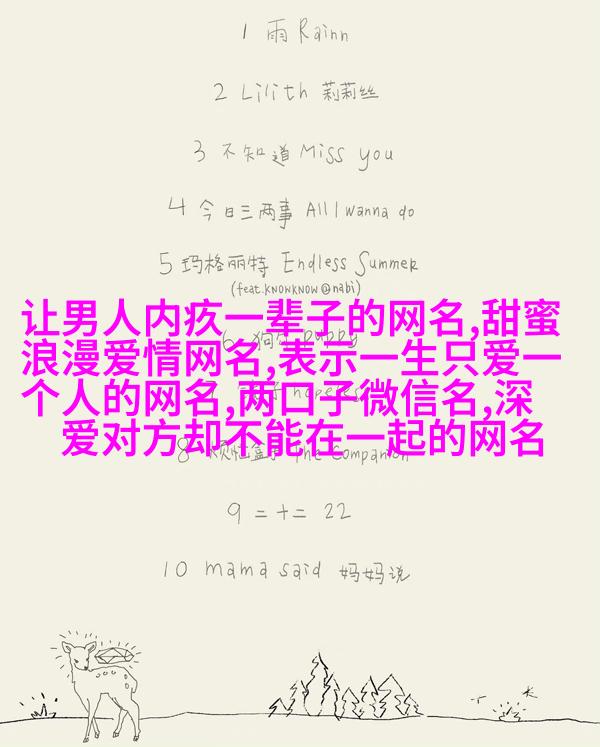 1 雨 Rainn
2 Lilith 莉莉丝
3 不知道 Miss you
4 今日三两事 All I wanna do
5 玛格丽特 Endless Summer
(feat.KNOWKNOW@nabi)
让男人内疚一辈子的网名,甜蜜
浪漫爱情网名,表示一生只爱一
个人的网名,两口子微信名,深
爱对方却不能在一起的网名
6 puppy
hopeless
8 烦恼 The Companion
9 二十二 22
10 mama said 妈妈说